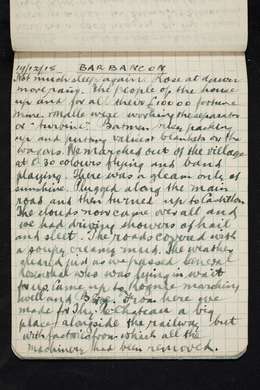 17/12/18 BARBANCON
Not much sleep again. Rose at dawn
more rain. The people of the house
up and for all their £10000 fortune
were working the separator
or "turbine". Batmen packing
up and putting valises blankets on the
wagons. We marched out of the village
at 9.30 colours flying and band
playing. There was a gleam only of
sunshine. Plugged along the main
road and then turned up to
The clouds now came over all and
we had driving showers of hail
and sleet. The roads covered with
a creamy mud. The weather
cleared just as we passed General
who was lying in wait
for us. Came up to marching
well and From here we
made for Thy le Chateau a big
place alongside the railway but
with factories from which all the
machinery had been removed.